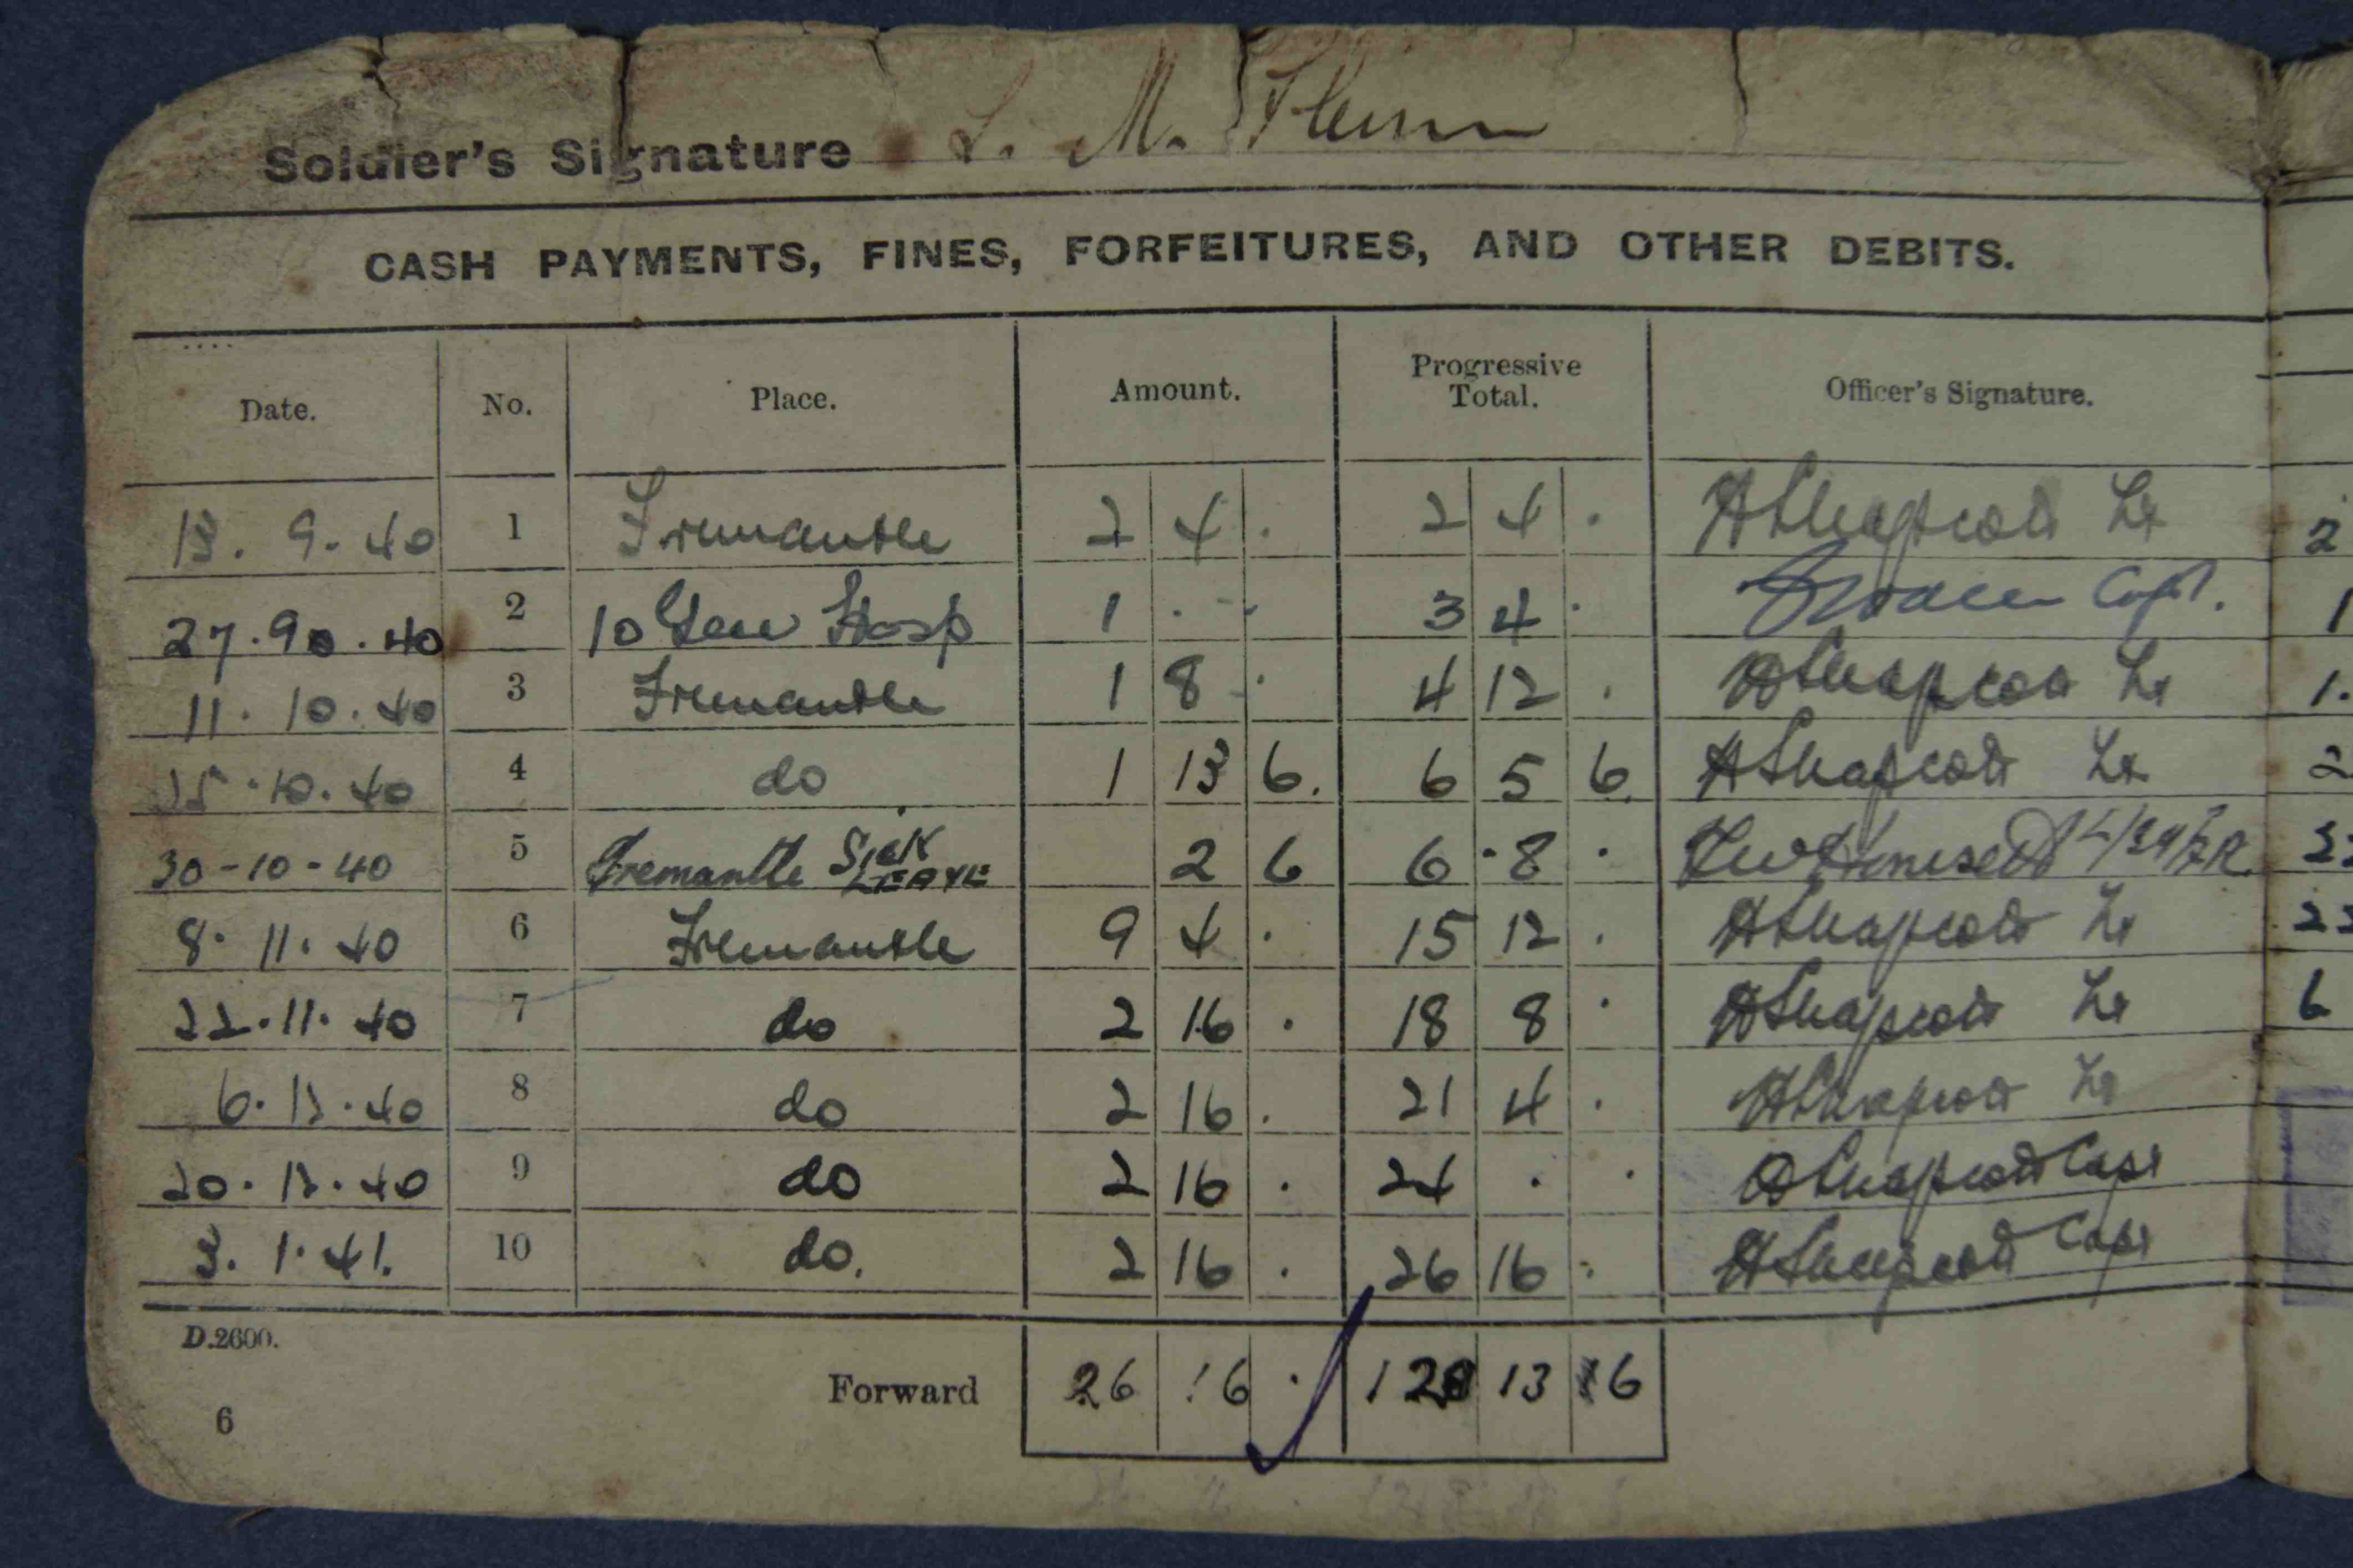 Soldier's Signature L. M.
CASH PAYMENTS, FINES, FORFEITURES, AND OTHER DEBITS.
Date. No. Place. Amount. Progressive Total. Officer's Signature.
13. 9. 40 1 Fremantle 2 4 . 2 4 . Lt
27. 9 . 40 2 10 Gen Hosp 1 . . 3 4 . Capt.
11. 10. 40 3 Fremantle 1 8 . 4 12 . Lt
25. 10. 40 4 do 1 13 6. 6 5 6. Lt
30-10-40 5 Fremantle SICK LEAVE 2 6 6 . 8 .
8. 11. 40 6 Fremantle 9 4 . 15 12 . Lt
22. 11. 40 7 do 2 16 . 18 8 . Lt
6. 12. 40 8 do 2 16 . 21 4 . Lt
20. 12. 40 9 do 2 16 . 24 . . Capt
3. 1. 41. 10 do. 2 16 . 26 16 . Capt
D.2600.
Forward 26 16 . 13 6
6